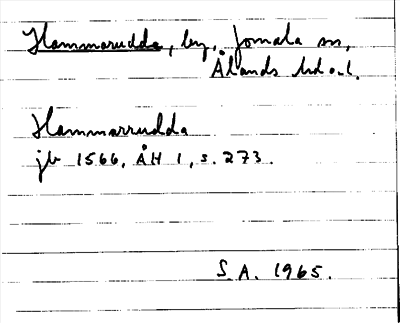 Hammarudda, by, Jomala sn,
Ålands hd o. l.
Hammarrudda
jb 1566, ÅH 1, s. 273.
S.A. 1965.